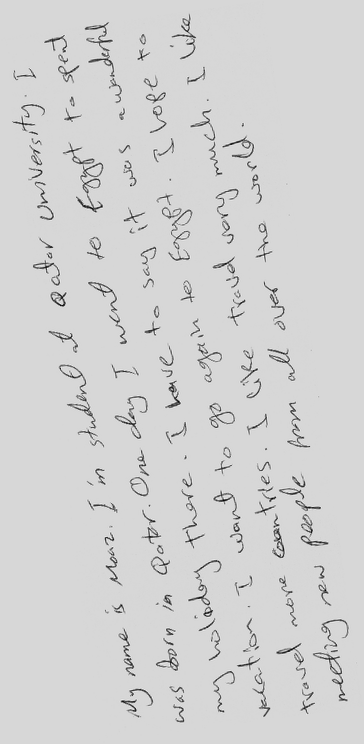 My name is Moaz. I'm student at Qatar University. I
was born in Qatar. One day I went to Egypt to spent
my holiday there. I have to say it was a wonderful
vacation. I want to go again to Egypt. I hope to
travel more countries. I like travel very much. I like
meeting new people from all over the world.